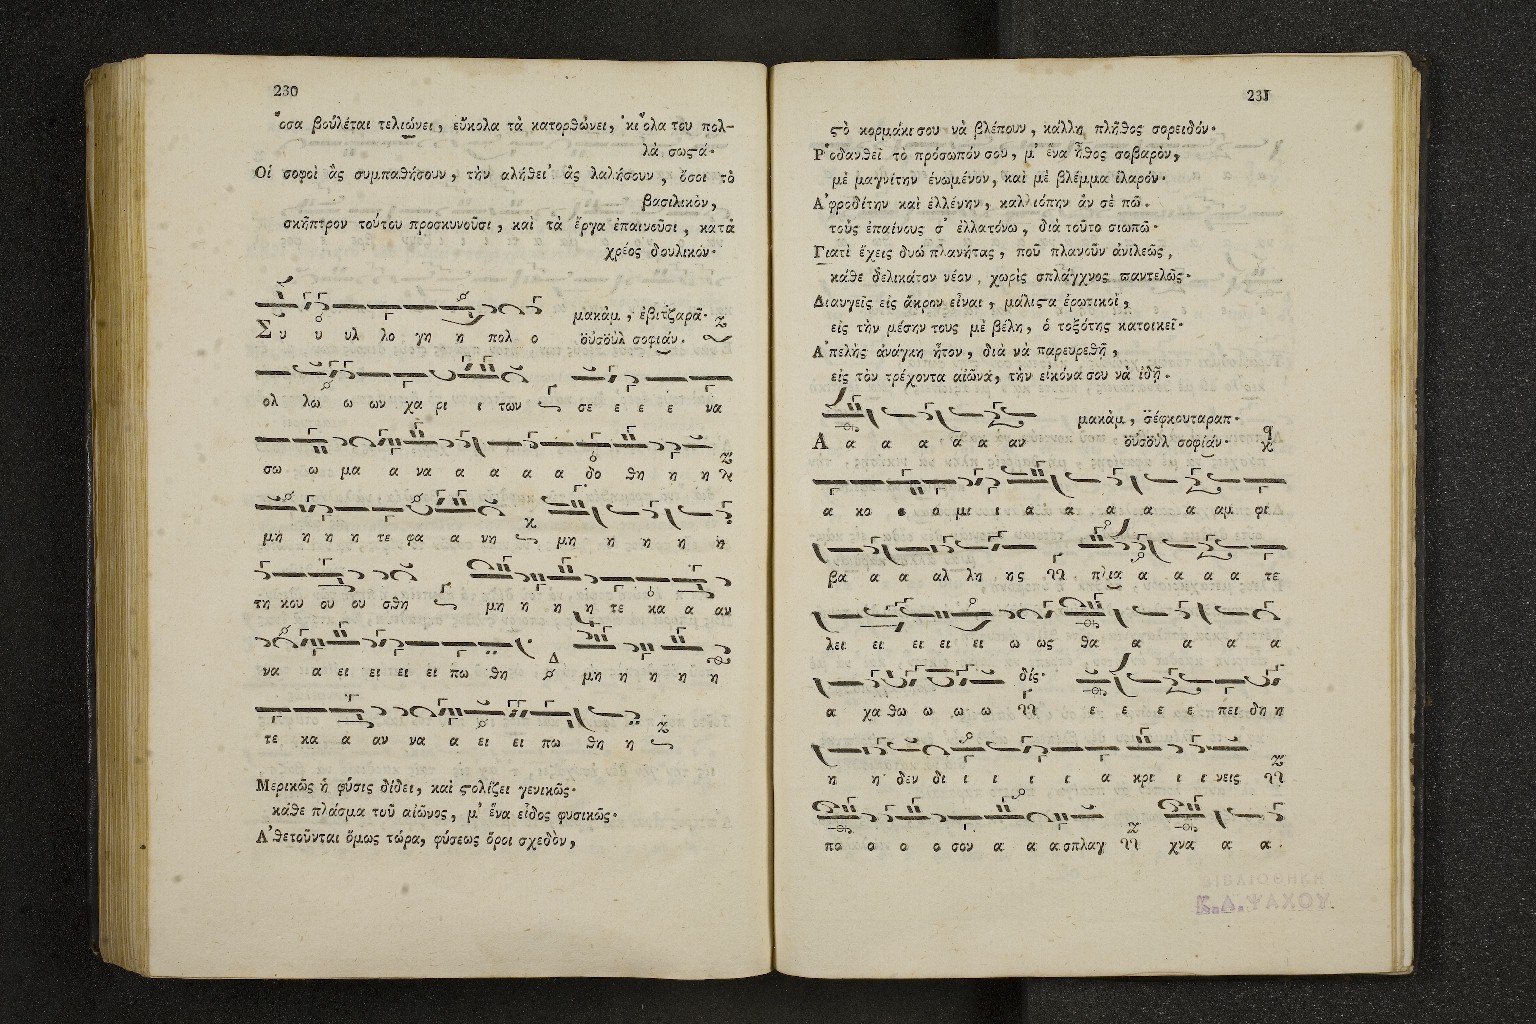 230
ὅσα βούλεται τελιώνει, εὔκολα τὰ κατορθώνει, κι ὅλα του πολ-
λὰ σωστά·
Οἱ σοφοὶ ἂς συμπαθήσουν, τὴν αλήθει' ἂς λαλήσουν, ὅσοι τὸ
βασιλικὸν,
σκῆπτρον τούτου προσκυνοῦσι, καὶ τὰ ἔργα ἐπαινοῦσι, κατὰ
χρέος δουλικόν·
μακὰμ, ἐβιτζαρᾶ·
Συ υ υλ λο γη η πολ ο οὐσοὺλ σοφιάν.
ολ λω ω ων χα ρι ι των σε ε ε ε να
σω ω μα α να α α α α δο θη η η
μη η η η τε φα α νη μη η η η η
τη κου ου ου σθη μη η η η τε κα α αν
να α ει ει ει ει πω θη μη η η η η
τε κα α αν να α ει ει πω θη η
Μερικῶς ἡ φύσις δίδει, καὶ στολίζει γενικῶς·
κάθε πλάσμα τοῦ αἰῶνος, μ' ἕνα εἶδος φυσικῶς·
Α'θετοῦνται ὅμως τώρα, φύσεως ὅροι σχεδὸν,
231
στὸ κορμάκι σου νὰ βλέπουν, κάλλη πλῆθος σορειδόν·
Ρ'οδανθεῖ τὸ πρόσωπόν σου, μ' ἕνα ἦθος σοβαρὸν,
μὲ μαγνίτην ἑνωμένον, καὶ μὲ βλέμμα ἱλαρόν·
Α'φροδίτην καὶ ἑλλένην, καλλιόπην ἀν σὲ πῶ.
τοὺς ἐπαίνους σ' ἐλλατόνω, διὰ τοῦτο σιωπῶ·
Γιατὶ ἔχεις δυώ πλανήτας, ποῦ πλανοῦν ἀνιλεῶς,
κάθε δελικάτον νέον, χωρὶς σπλάγχνος παντελῶς·
Διαυγεῖς εἰς ἄκρον εἶναι, μάλιστα ἐρωτικοὶ,
εἰς τὴν μέσην τους μὲ βέλη, ὁ τοξότης κατοικεῖ·
Α'πελῆς ἀνάγκη ἦτον, διὰ νὰ παρευρεθῇ,
εἰς τὸν τρέχοντα αἰῶνα, τὴν εἰκόνα σου νὰ ἰδῇ.
μακὰμ, σέφκουταραπ·
Α α α α α α αν οὐσοὺλ σοφιάν·
α κο ο ο μι ι α α α α α αμ φι
βα α α αλ λη ης πλια α α α α τε
λει ει ει ει ει ω ως θα α α α α
α χα θω ω ω ω δίς· ε ε ε ε πει δη η
η η δεν δι ι ι ι ι α κρι ι ι νεις
πο ο ο ο σου α α α σπλαγ χνα α α.
ΒΙΒΛΙΟΘΗΚΗ
Κ.Δ.ΨΑΧΟΥ